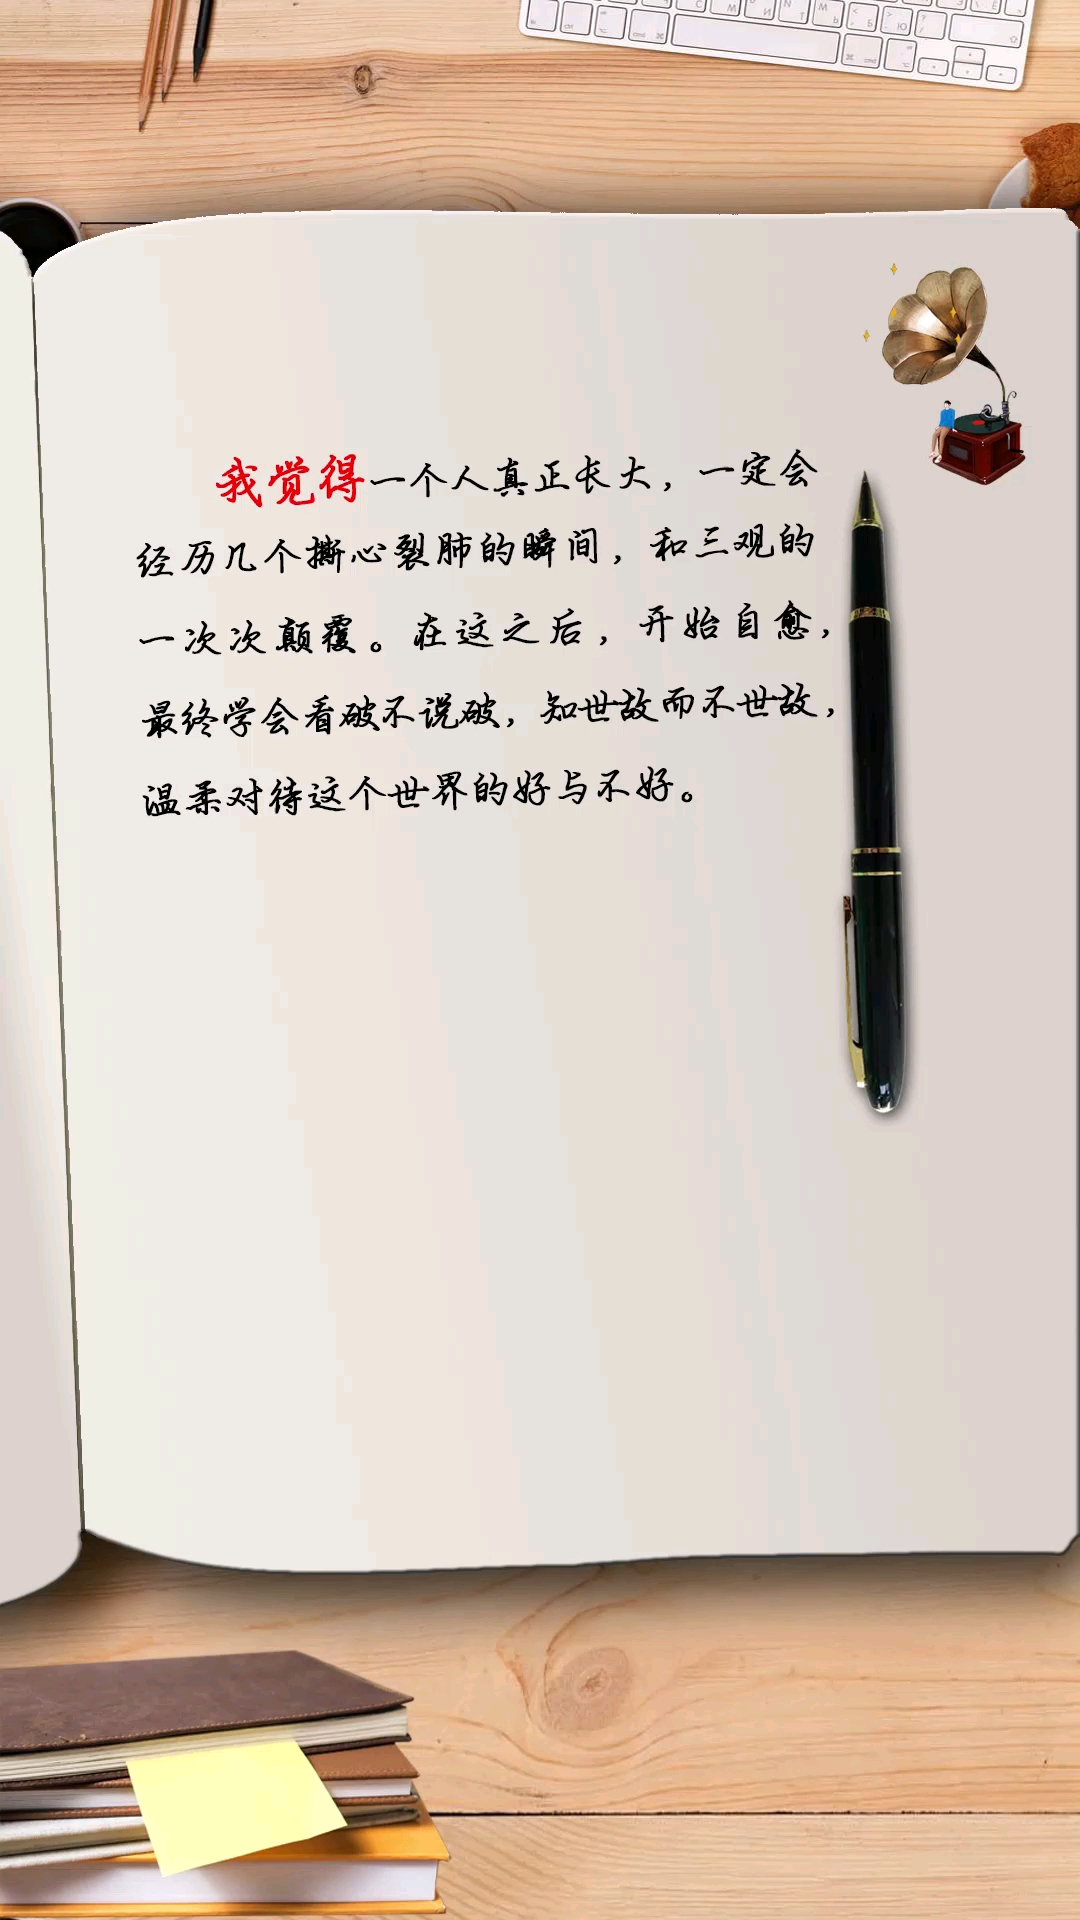 我觉得一个人真正长大，一定会
经历几个撕心裂肺的瞬间，和三观的
一次次颠覆。在这之后，开始自愈，
最终学会看破不说破，知世故而不世故，
温柔对待这个世界的好与不好。